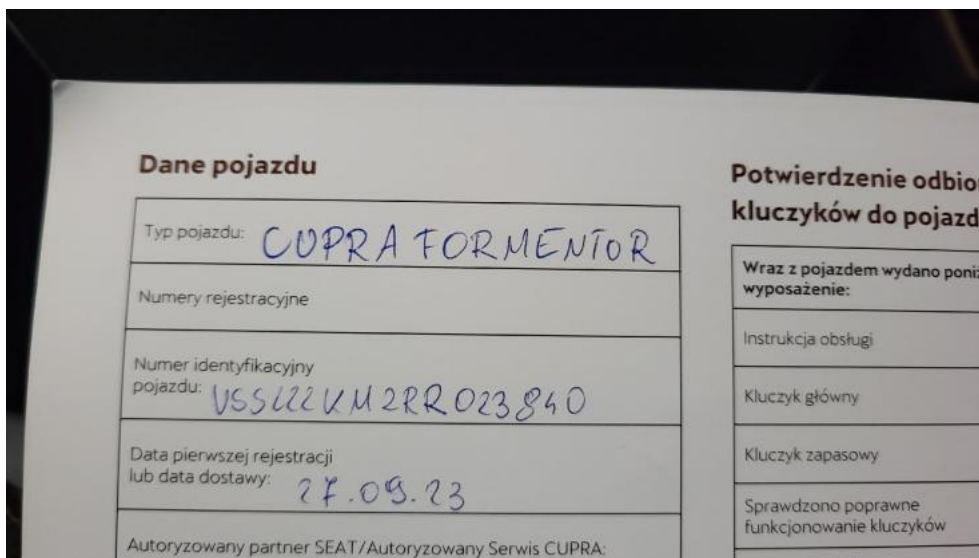 Dane pojazdu
Typ pojazdu: CUPRA FORMENTOR
Numery rejestracyjne
Numer identyfikacyjny
pojazdu: VSSZZZKM2RR023840
Data pierwszej rejestracji
lub data dostawy: 27.09.23
Autoryzowany partner SEAT/Autoryzowany Serwis CUPRA:
Potwierdzenie odbio
kluczyków do pojazd
Wraz z pojazdem wydano poniż
wyposażenie:
Instrukcja obsługi
Kluczyk główny
Kluczyk zapasowy
Sprawdzono poprawne
funkcjonowanie kluczyków